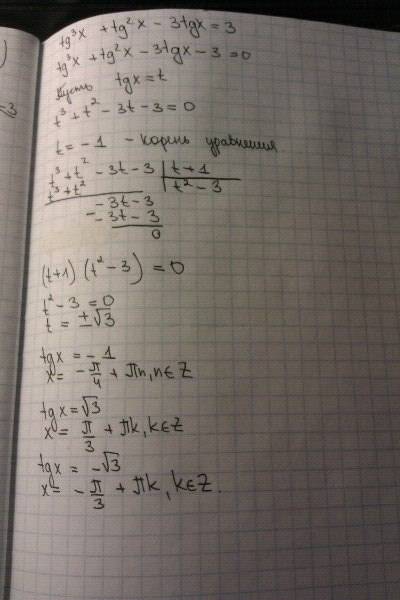 tg³x + tg²x - 3tgx = 3
tg³x + tg²x - 3tgx - 3 = 0
Пусть tgx = t
t³ + t² - 3t - 3 = 0
t = -1 - корень уравнения
t³ + t² - 3t - 3 | t + 1
t³ + t² | t² - 3
- 3t - 3
- - 3t - 3
0
(t+1) (t² - 3) = 0
t² - 3 = 0
t = ±√3
tgx = -1
x = -π/4 + πn, n∈Z
tgx = √3
x = π/3 + πk, k∈Z
tgx = -√3
x = -π/3 + πk, k∈Z.